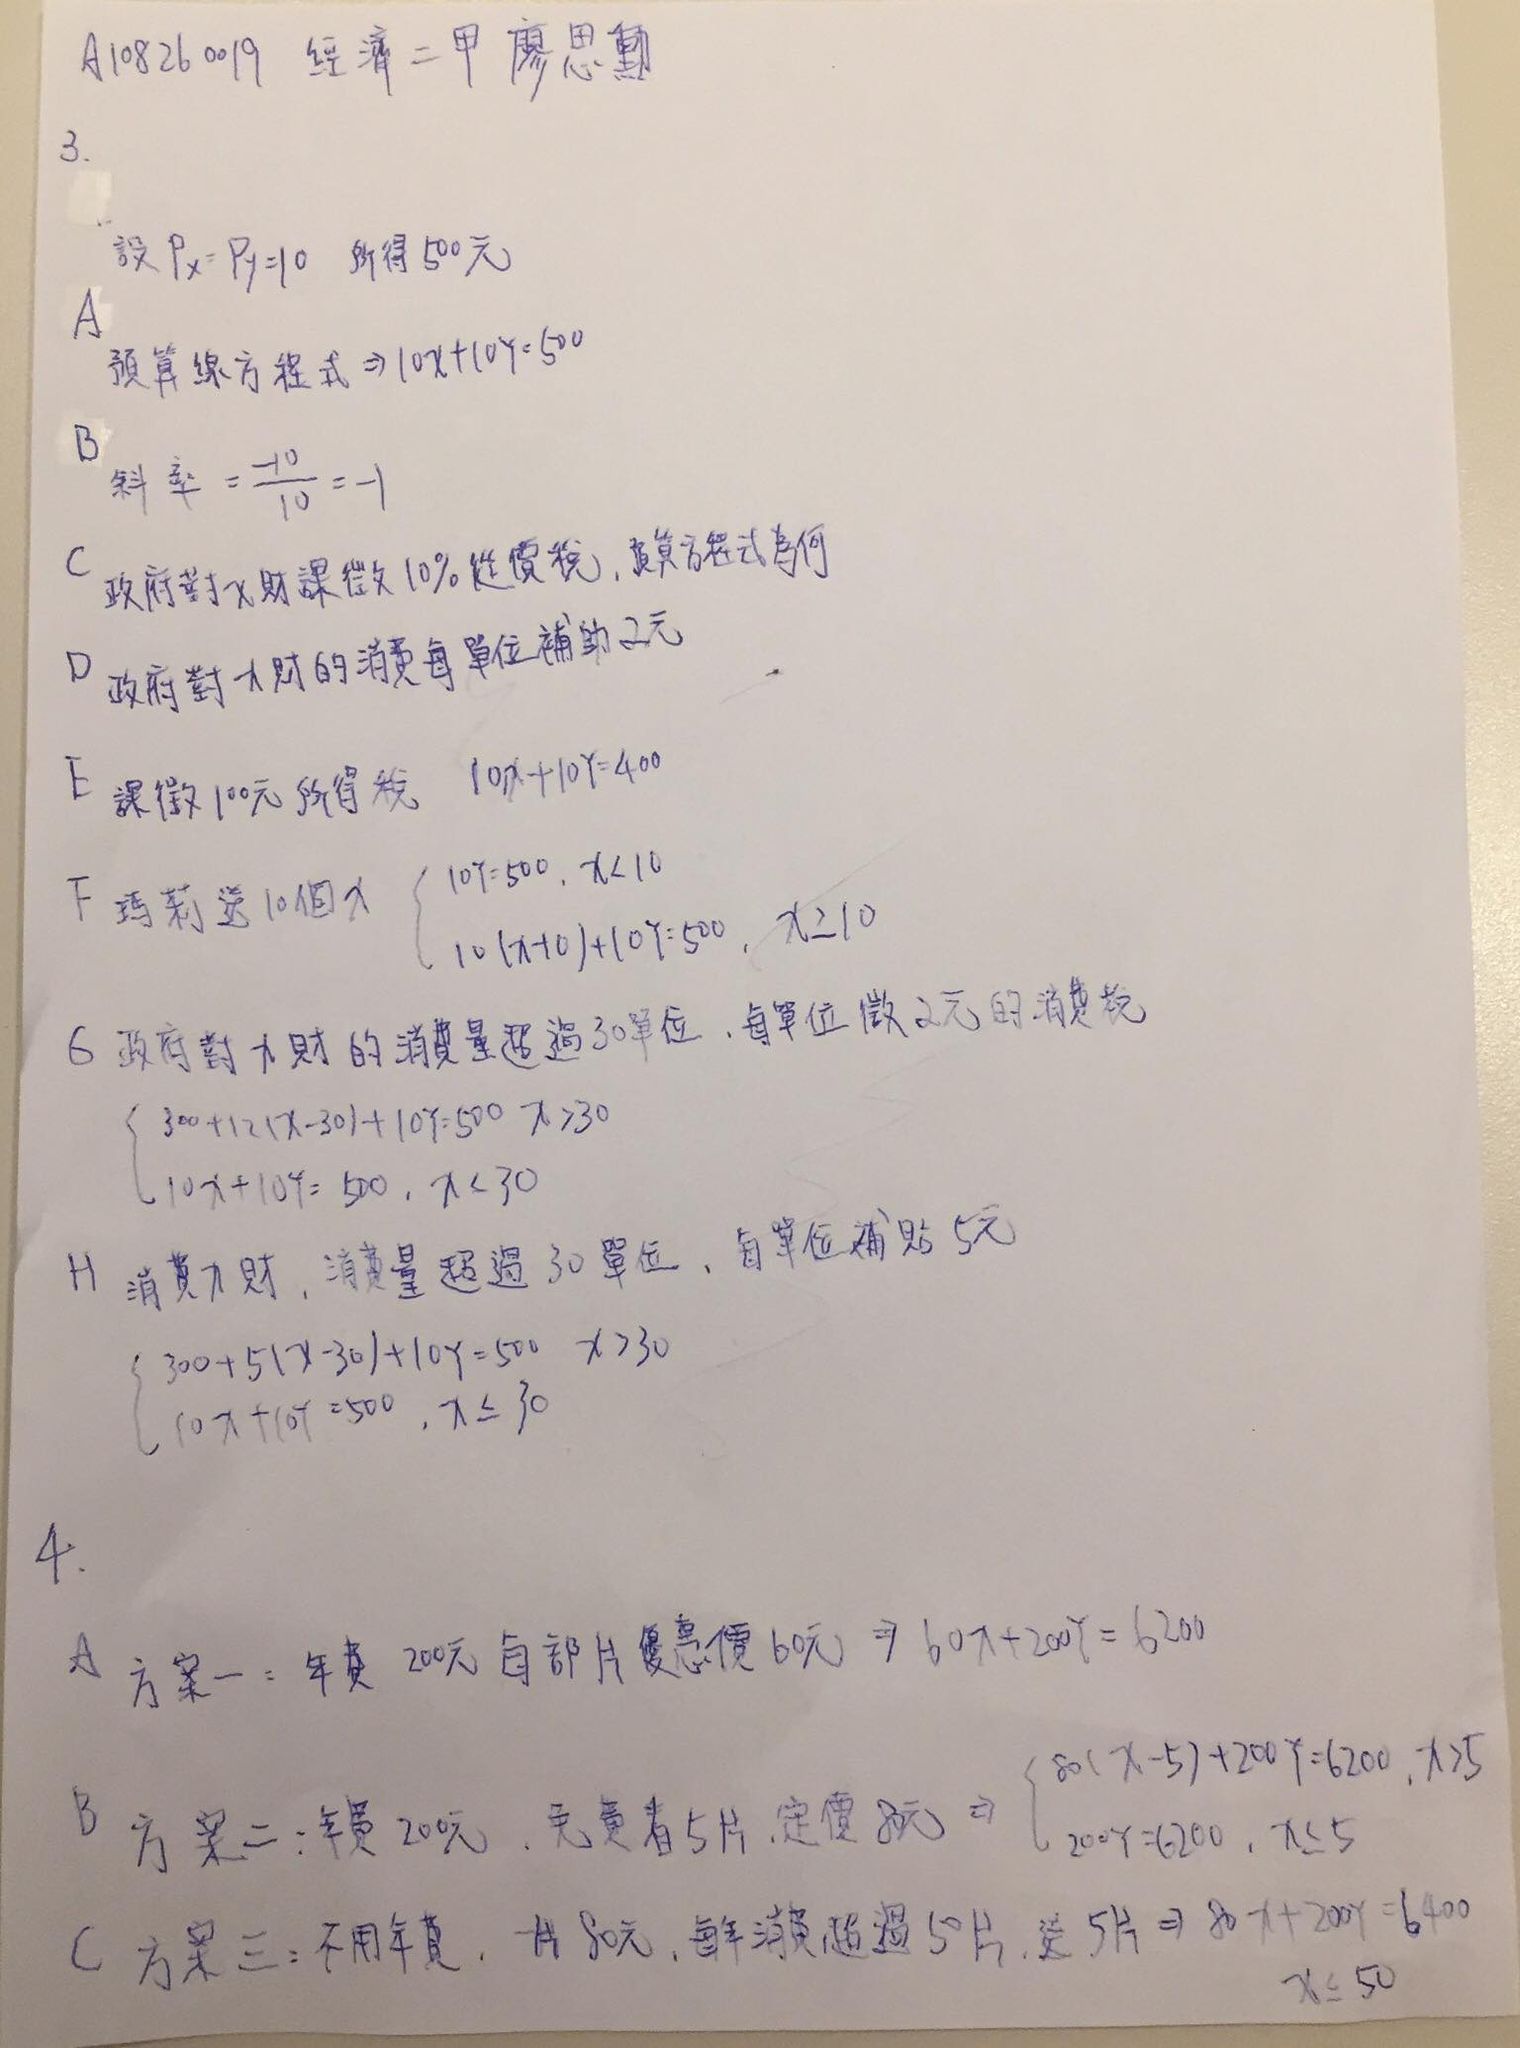 A108260019 經濟二甲 廖思勳
3.
設 Px=Py=10 所得500元
A
預算線方程式⇒10x+10Y=500
B
斜率 = -10/10 = -1
C 政府對x財課徵10%從價稅,預算方程式為何
D 政府對x財的消費每單位補助2元
E 課徵100元所得稅 10x+10Y=400
F 瑪莉送10個x { 10Y=500, x<10
10(x-10)+10Y=500, x≥10
G 政府對x財的消費量超過30單位,每單位徵2元的消費稅
{ 300+12(x-30)+10Y=500 x>30
10x+10Y=500, x<30
H 消費x財,消費量超過30單位,每單位補貼5元
{ 300+5(x-30)+10Y=500 x>30
10x+10Y=500, x≤30
4.
A 方案一:年費200元每部片優惠價60元⇒60x+200Y=6200
B 方案二:年費200元,免費看5片,定價80元⇒ { 80(x-5)+200Y=6200, x>5
200Y=6200, x≤5
C 方案三:不用年費,一片80元,每年消費超過50片,送5片⇒80x+200Y=6400
x≤50